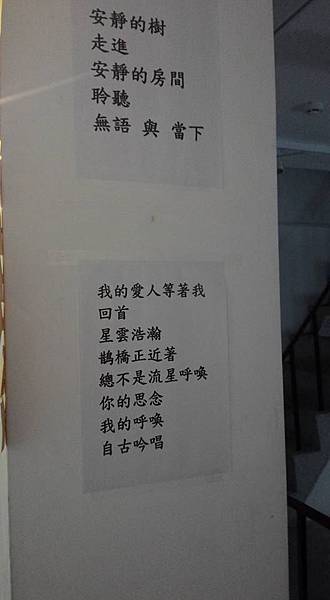 安靜的樹
走進
安靜的房間
聆聽
無語 與 當下
我的愛人等著我
回首
星雲浩瀚
鵲橋正近著
總不是流星呼喚
你的思念
我的呼喚
自古吟唱